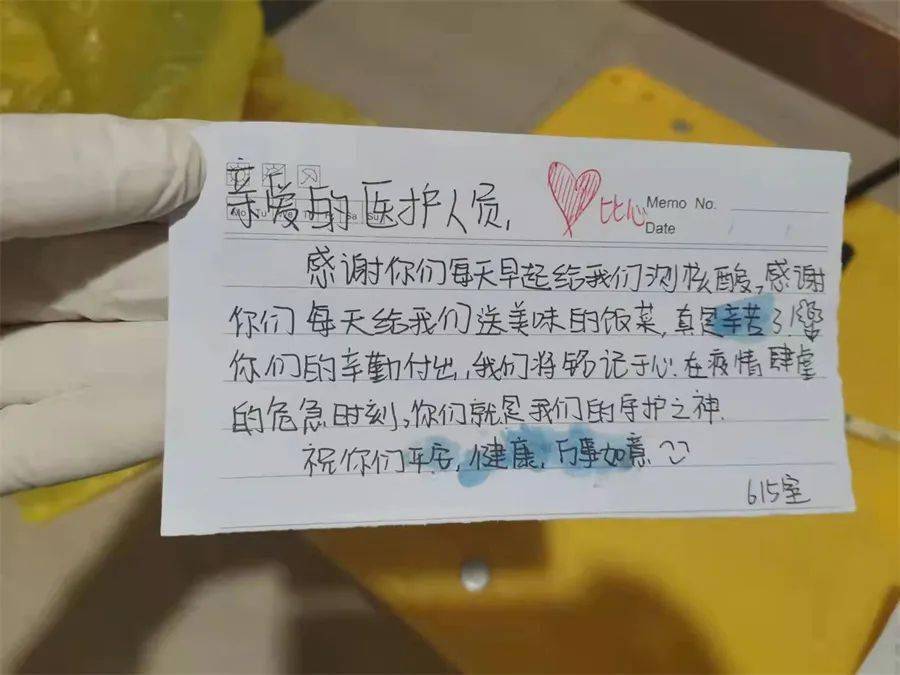 亲爱的医护人员,
比心
Memo No.
Mo Tu We Th Fr Sa Su
Date
感谢你们每天早起给我们测核酸,感谢
你们每天给我们送美味的饭菜,真是辛苦了
你们的辛勤付出,我们将铭记于心.在疫情肆虐
的危急时刻,你们就是我们的守护之神.
祝你们平安,健康,万事如意
615室